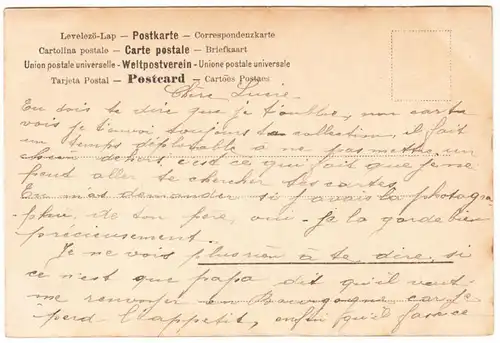 Levelező-Lap — Postkarte — Correspondenzkarte
Cartolina postale — Carte postale — Briefkaart
Union postale universelle - Weltpostverein - Unione postale universale
Tarjeta Postal — Postcard — Cartões Postaes
Chère Lucie
Tu dois te dire que je t'oublie, non car tu
vois je t'envoi toujours ta collection, il fait
un temps déplorable à ne pas mettre un
chien dehors c'est ce qui fait que je ne
peut aller te chercher des cartes
Tu m'as demander si j'avais la photogra
phie de ton père, oui - je la garde bien
précieusement.
Je ne vois plus rien à te dire, si
ce n'est que papa dit qu'il veut
me renvoyer en Bourgogne car je
perd l'appetit, enfin qu'il fasse ce